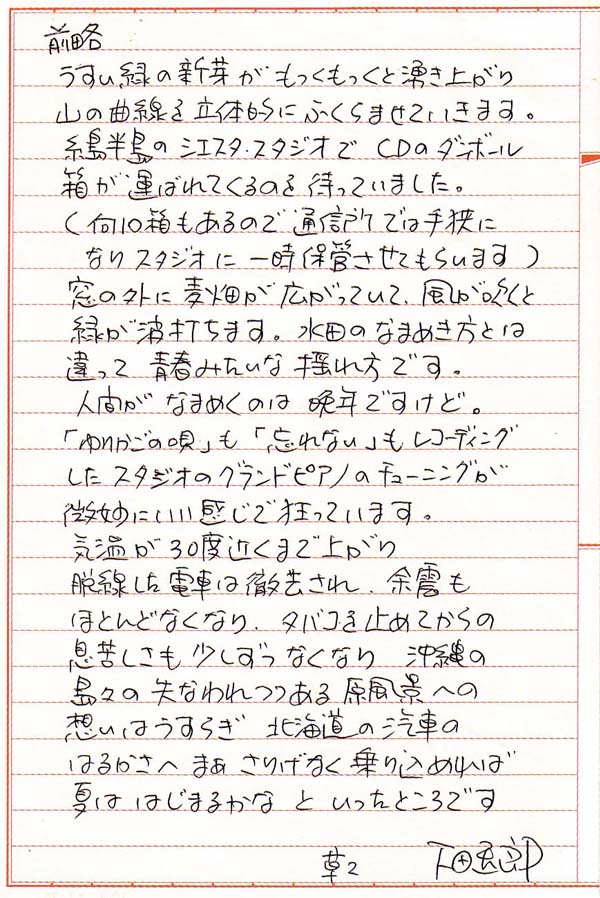 前略
うすい緑の新芽が もっくもっくと湧き上がり
山の曲線を立体的に ふくらませていきます。
糸島半島の シエスタ・スタジオで CDのダンボール
箱が 運ばれてくるのを 待っていました。
(何10箱もあるので 通信所では手狭に
なりスタジオに 一時保管させてもらいます)
窓の外に 麦畑が 広がっていて、風が吹くと
緑が波打ちます。水田のなまめき方とは
違って 青春みたいな 揺れ方です。
人間が なまめくのは 晩年ですけど。
「ゆりかごの唄」も「忘れない」も レコーディング
した スタジオの グランドピアノの チューニングが
微妙にいい感じで 狂っています。
気温が 30度近くまで上がり
脱線した電車は撤去され、余震も
ほとんどなくなり、タバコを止めてからの
息苦しさも 少しずつ なくなり 沖縄の
島々の 失なわれつつある 原風景への
想いはうすらぎ 北海道の汽車の
はるかさへ まぁ さりげなく 乗り込めれば
夏は はじまるかな と いったところです
草々 下田逸郎